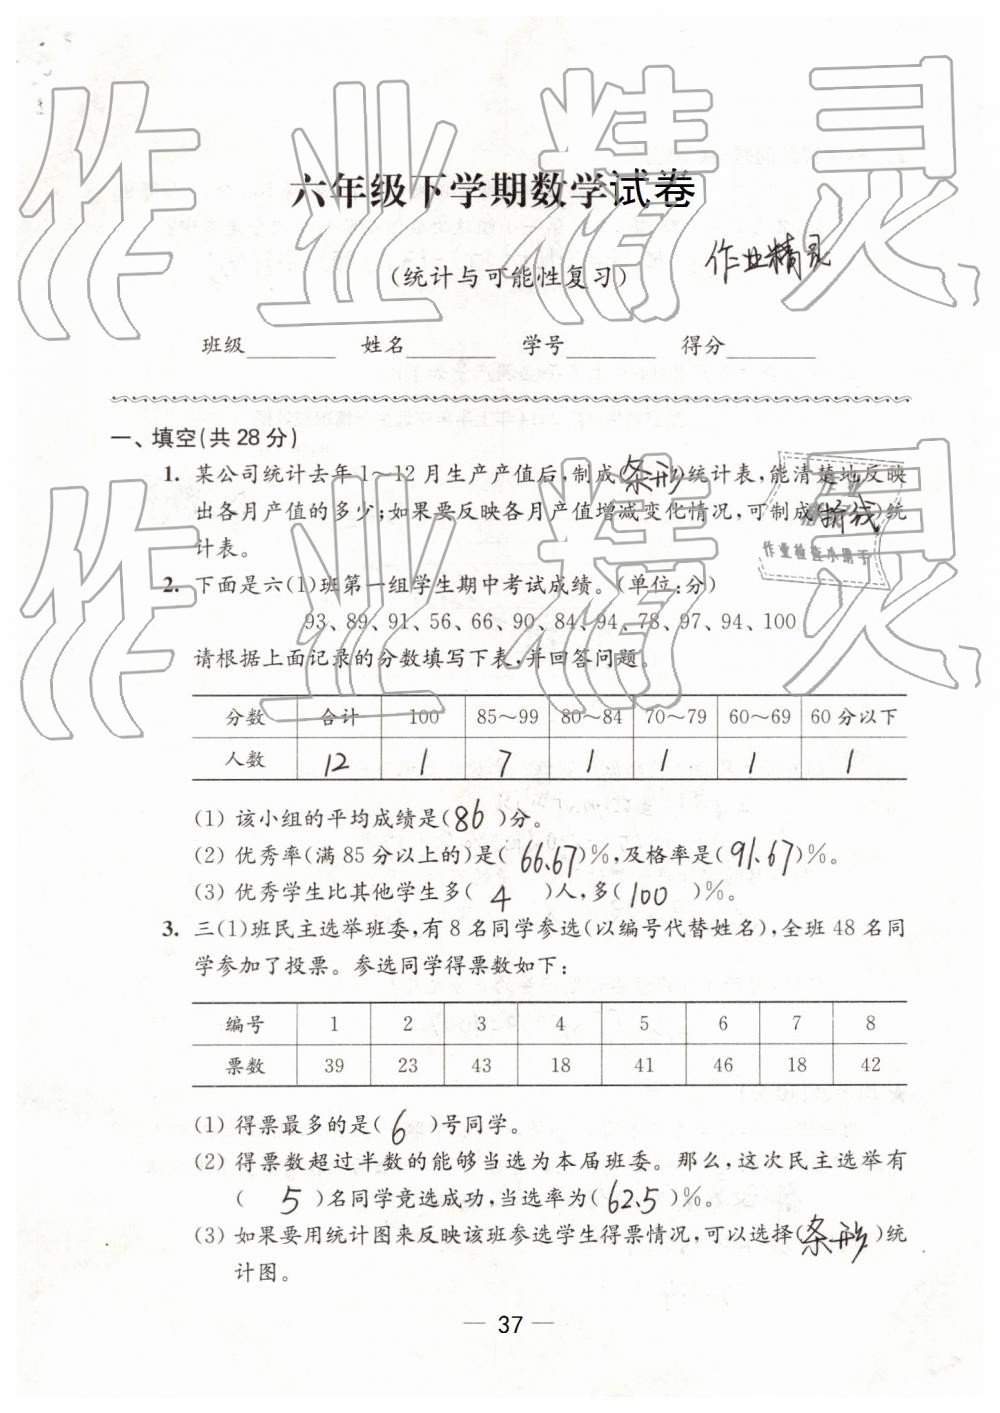 六年级下学期数学试卷
作业精灵
(统计与可能性复习)
班级 姓名 学号 得分
一、填空(共28分)
1. 某公司统计去年1～12月生产产值后,制成(条形)统计表,能清楚地反映
出各月产值的多少;如果要反映各月产值增减变化情况,可制成(折线)统
计表。
作业检查小助手
2. 下面是六(1)班第一组学生期中考试成绩。(单位:分)
93、89、91、56、66、90、84、94、78、97、94、100
请根据上面记录的分数填写下表,并回答问题。
分数 合计 100 85～99 80～84 70～79 60～69 60分以下
人数 12 1 7 1 1 1 1
(1) 该小组的平均成绩是(86)分。
(2) 优秀率(满85分以上的)是(66.67)%,及格率是(91.67)%。
(3) 优秀学生比其他学生多(4)人,多(100)%。
3. 三(1)班民主选举班委,有8名同学参选(以编号代替姓名),全班48名同
学参加了投票。参选同学得票数如下:
编号 1 2 3 4 5 6 7 8
票数 39 23 43 18 41 46 18 42
(1) 得票最多的是(6)号同学。
(2) 得票数超过半数的能够当选为本届班委。那么,这次民主选举有
(5)名同学竞选成功,当选率为(62.5)%。
(3) 如果要用统计图来反映该班参选学生得票情况,可以选择(条形)统
计图。
— 37 —
作业精灵
作业精灵